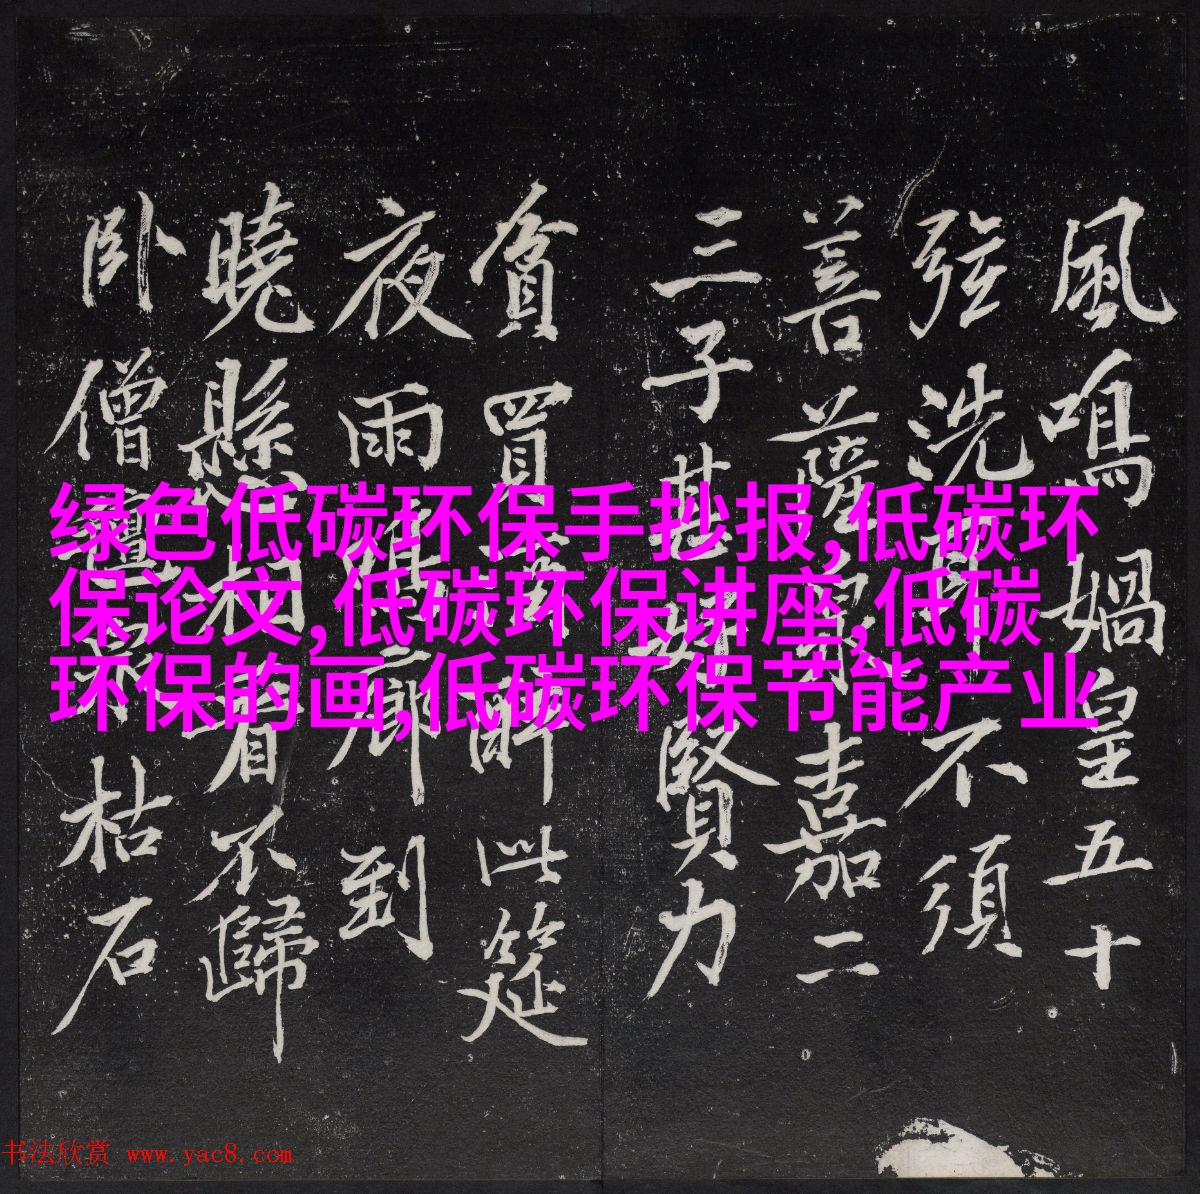 風鳴媧皇五十
弦洗耳不須
菩薩泉嘉二
三子甚好賢力
貧買酒醉此筵
夜雨鳴廊到
曉懸相看不歸
卧僧氈泉枯石
绿色低碳环保手抄报,低碳环
保论文,低碳环保讲座,低碳
环保的画,低碳环保节能产业
书法欣赏 www.yac8.com